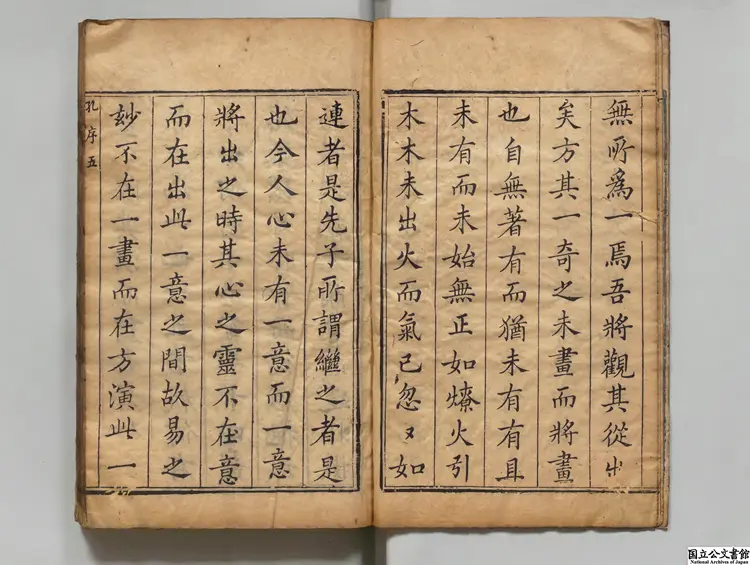 無所爲一焉吾將觀其從出
矣方其一奇之未畫而將畫
也自無著有而猶未有有且
未有而未始無正如燎火引
木木未出火而氣已忽〻如
連者是先子所謂繼之者是
也今人心未有一意而一意
將出之時其心之靈不在意
而在出此一意之間故易之
玅不在一畫而在方演此一
孔序五
国立公文書館
National Archives of Japan